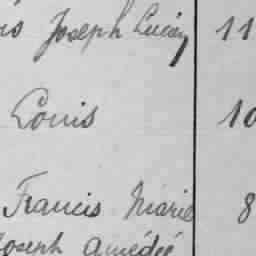 Joseph Lucien 11
Louis 10
Francis Marie 8
Joseph Amédée